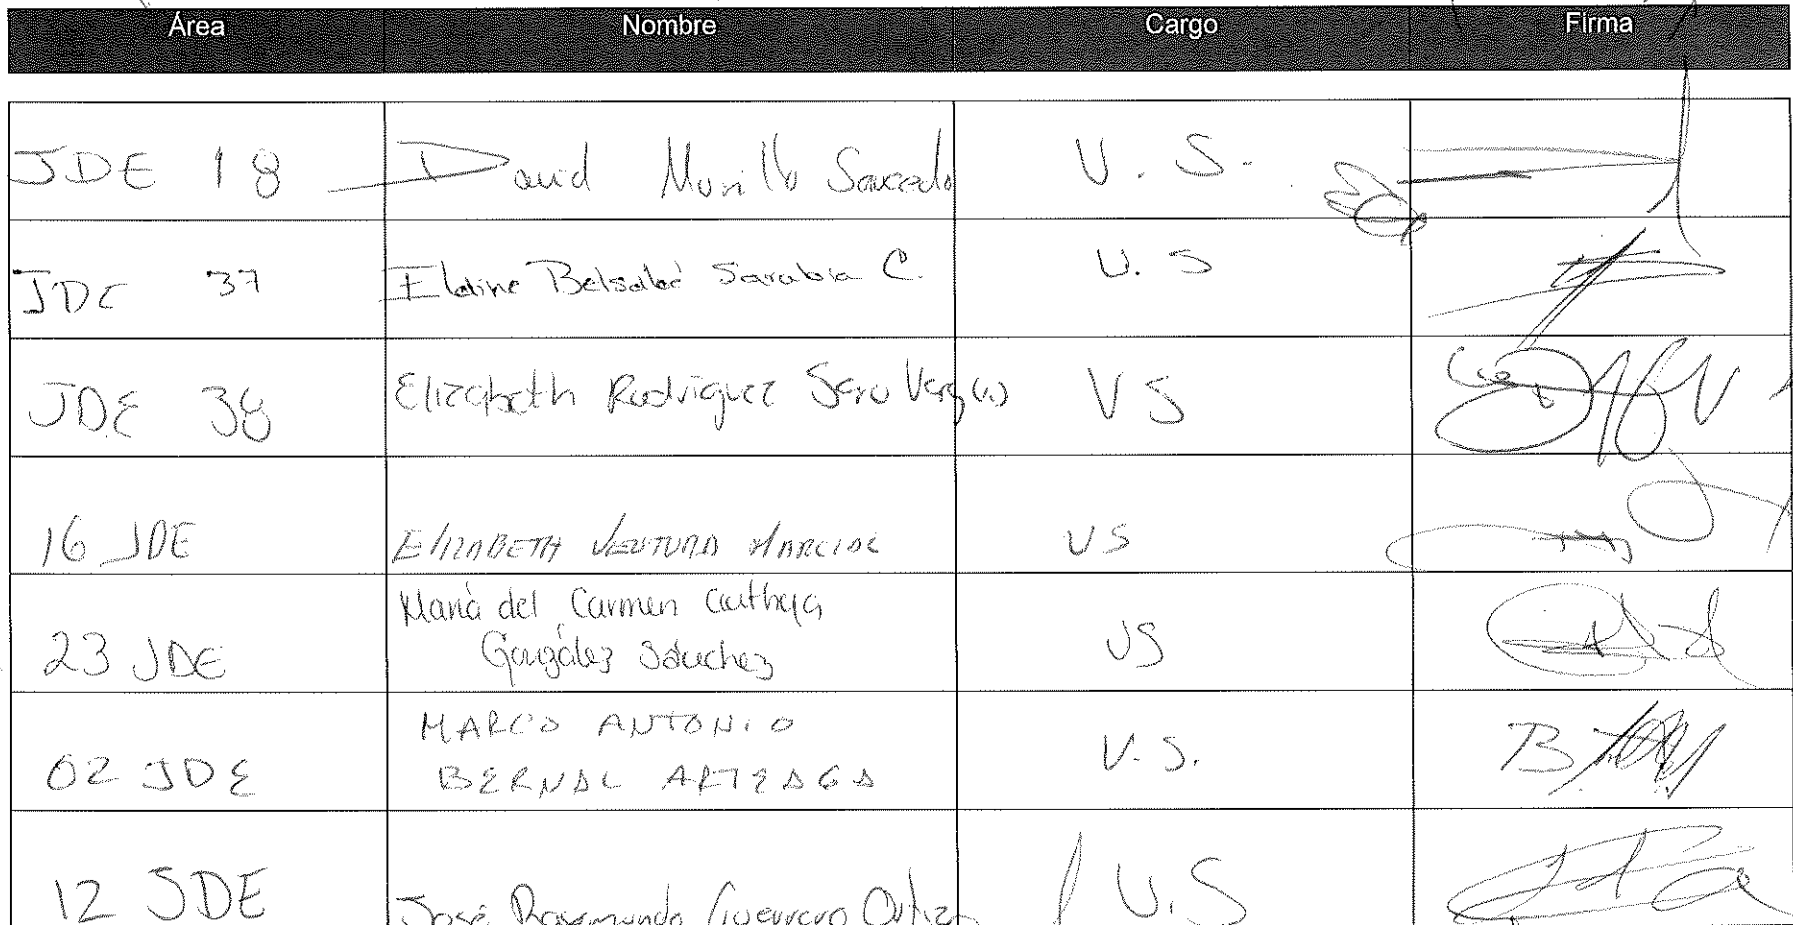 Área Nombre Cargo Firma
JDE 18 David Murillo Saucedo V. S.
JDE 37 Elaine Betsabé Sarabia C. V. S
JDE 38 Elizabeth Rodríguez Vargas V S
16 JDE ELIZABETH VENTURA MARCIAL VS
María del Carmen
23 JDE González Sánchez VS
MARCO ANTONIO
02 JDE BERNAL ARTEAGA V. S.
12 JDE José Raymundo Guerrero Ortiz V.S